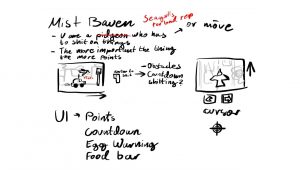 Mist Baven
Seagulls
or move
- U are a pidgeon who has
to shit on things
- The more important the thing
the more points
- Obstacles
- Countdown
shitting?
UI → Points
Countdown
Egg Warning
Food bar
cursor